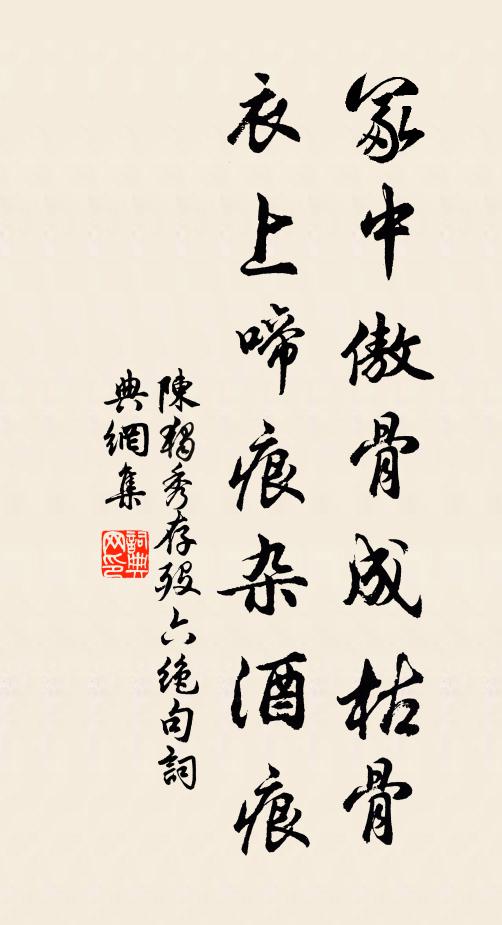 冢中傲骨成枯骨
衣上啼痕杂酒痕
陳獨秀存殁六绝句詞
典網集
詞典
网印